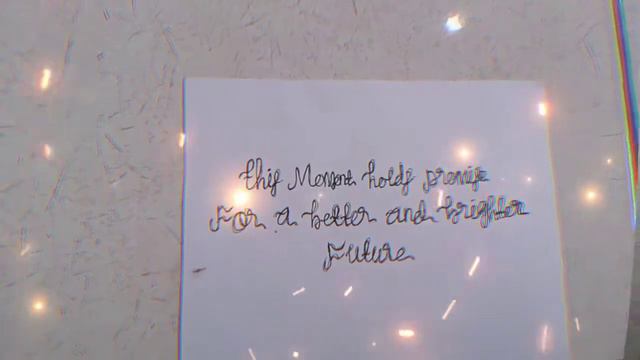 This Moment holds promise
For a better and brighter
Future